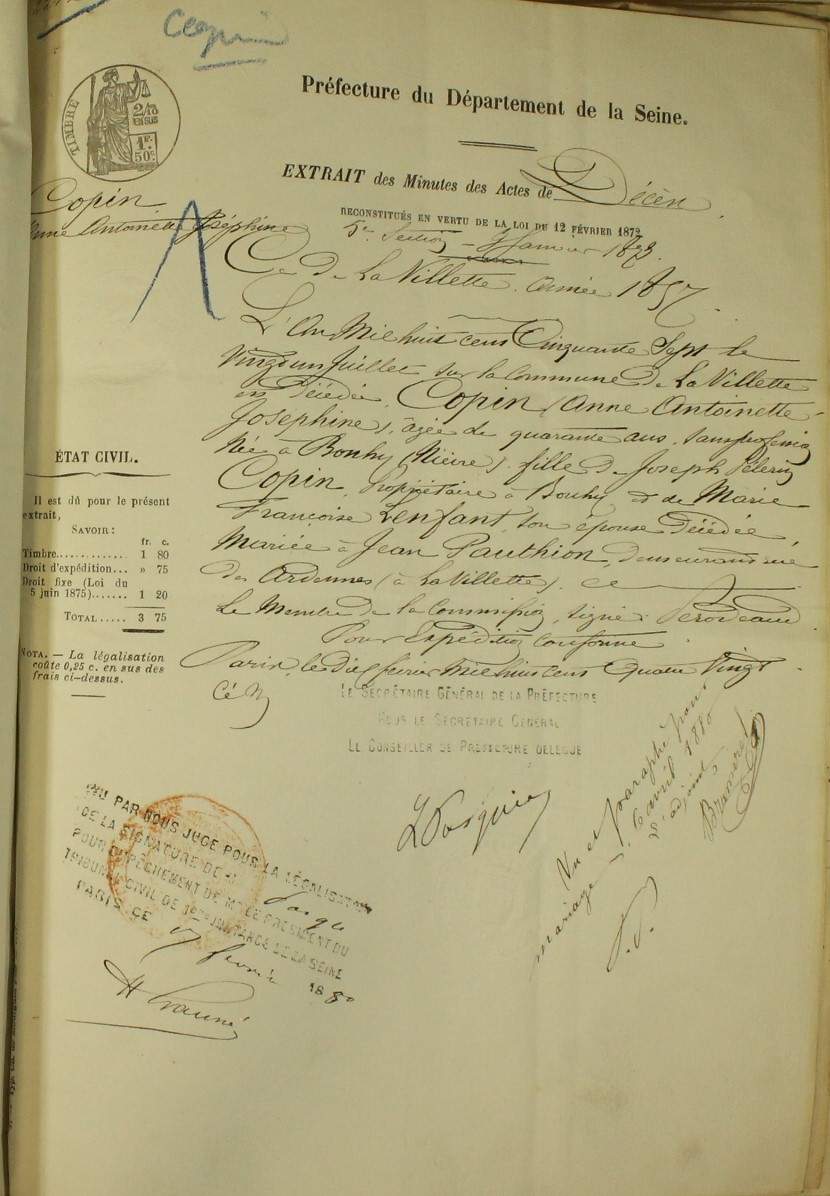 Copin
Préfecture du Département de la Seine.
TIMBRE
2/10
EN SUS
1F.
50c.
EXTRAIT des Minutes des Actes de Décès
RECONSTITUÉS EN VERTU DE LA LOI DU 12 FÉVRIER 1872
Copin
Anne Antoinette Joséphine
5e Section - Janvier 1873
Ce de La Villette. Année 1857.
L'An Mil huit cent Cinquante Sept le
Vingt un Juillet sur la Commune de La Villette
est Décédée, Copin (Anne Antoinette
Joséphine), âgée de quarante ans, sans profession
Née à Bouhy (Nièvre), fille de Joseph Pélerin
Copin, propriétaire à Bouhy et de Marie
Françoise Lenfant, son épouse Décédée,
Mariée à Jean Pauthion, demeurant rue
des Ardennes (à La Villette).
Le Membre de la Commission, signé:
Pour Expédition conforme
Paris, le Dix février Mil huit cent Quatre Vingt
LE SECRÉTAIRE GÉNÉRAL DE LA PRÉFECTURE
POUR LE SECRÉTAIRE GÉNÉRAL
LE CONSEILLER DE PRÉFECTURE DÉLÉGUÉ
ÉTAT CIVIL.
Il est dû pour le présent
extrait,
SAVOIR:
fr. c.
Timbre............ 1 80
Droit d'expédition... » 75
Droit fixe (Loi du
5 juin 1875)....... 1 20
TOTAL..... 3 75
NOTA. — La légalisation
coûte 0,25 c. en sus des
frais ci-dessus.
VU PAR NOUS JUGE POUR LA LÉGALISATION
DE LA SIGNATURE DE M
POUR EMPÊCHEMENT DE MR LE PRÉSIDENT DU
TRIBUNAL CIVIL DE 1ERE INSTANCE DE LA SEINE
PARIS, CE 17 février 1880
Vu et paraphé pour
mariage 6 avril 1880
L'adjoint